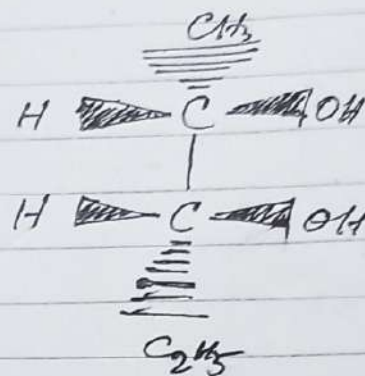 CH₃
H C OH
H C OH
C₂H₅